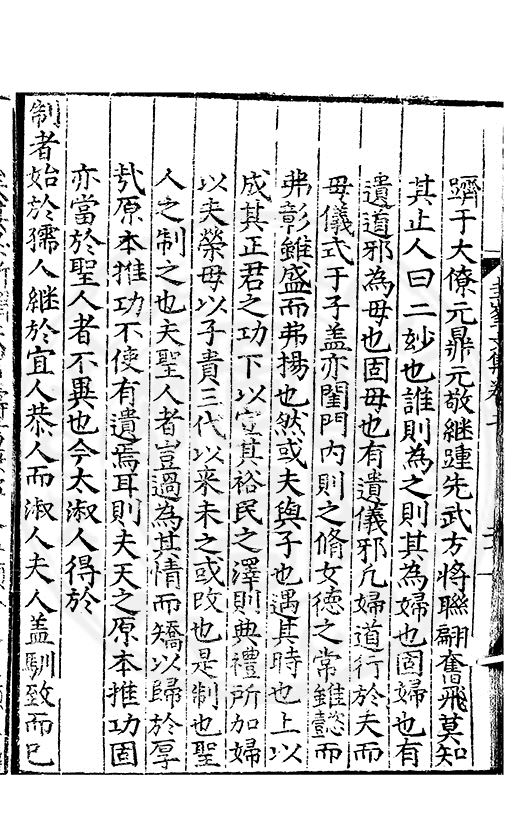 躋于大僚元鼎元敬繼踵先武方將聯翩奮飛莫知
其止人曰二妙也誰則為之則其為婦也固婦也有
遺道邪為母也固母也有遺儀邪凡婦道行於夫而
母儀式于子盖亦閨門內則之脩女德之常雖懿而
弗彰雖盛而弗揚也然或夫與子也遇其時也上以
成其正君之功下以宣其裕民之澤則典禮所加婦
以夫榮母以子貴三代以來未之或改也是制也聖
人之制之也夫聖人者豈過為其情而矯以歸於厚
㢤原本推功不使有遺焉耳則夫天之原本推功固
亦當於聖人者不異也今太淑人得於
制者始於孺人繼於宜人恭人而淑人夫人盖馴致而已